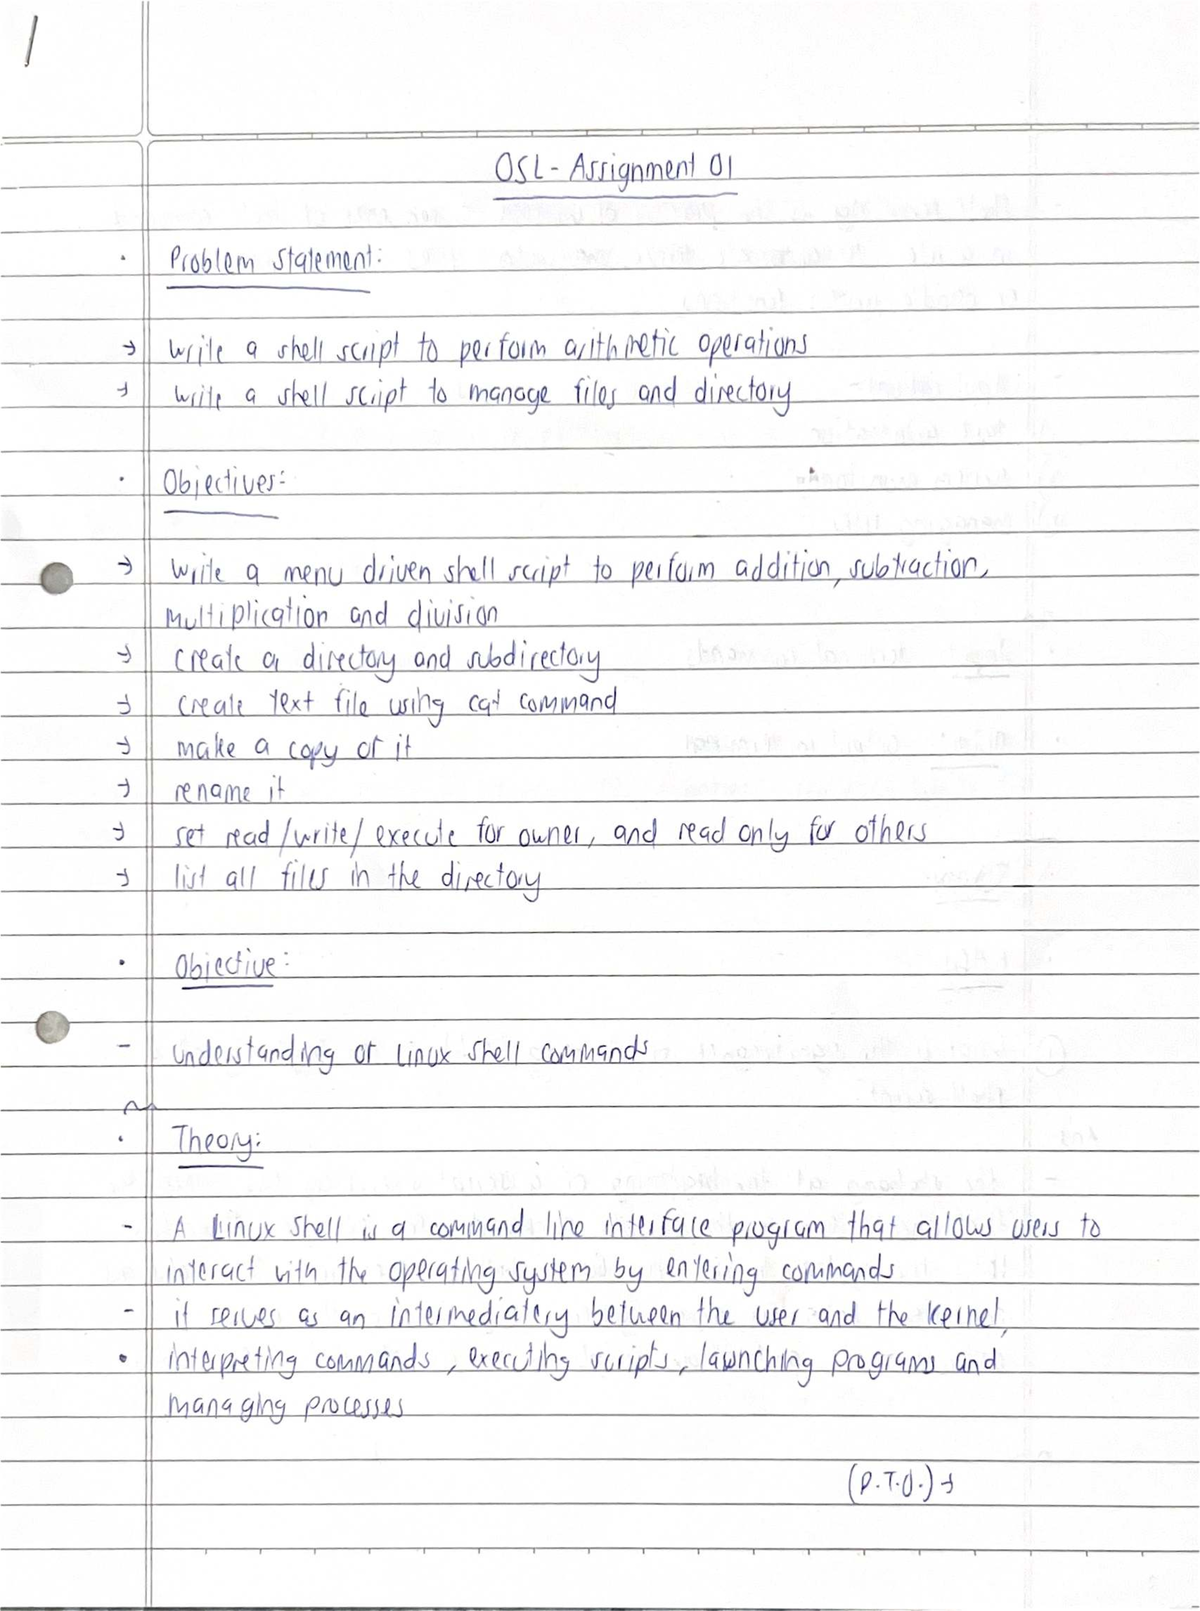 1
OSL - Assignment 01
· Problem statement:
→ write a shell script to perform arithmetic operations
→ write a shell script to manage files and directory
· Objectives:-
→ write a menu driven shell script to perform addition, subtraction,
multiplication and division
→ create a directory and subdirectory
→ create text file using cat command
→ make a copy of it
→ rename it
→ set read/write/execute for owner, and read only for others
→ list all files in the directory
· Objective:
- understanding of linux shell commands
· Theory:
- A Linux shell is a command line interface program that allows users to
interact with the operating system by entering commands
- it serves as an intermediatery between the user and the kernel,
• interpreting commands, executing scripts, launching programs and
managing processes
(P.T.O.) →